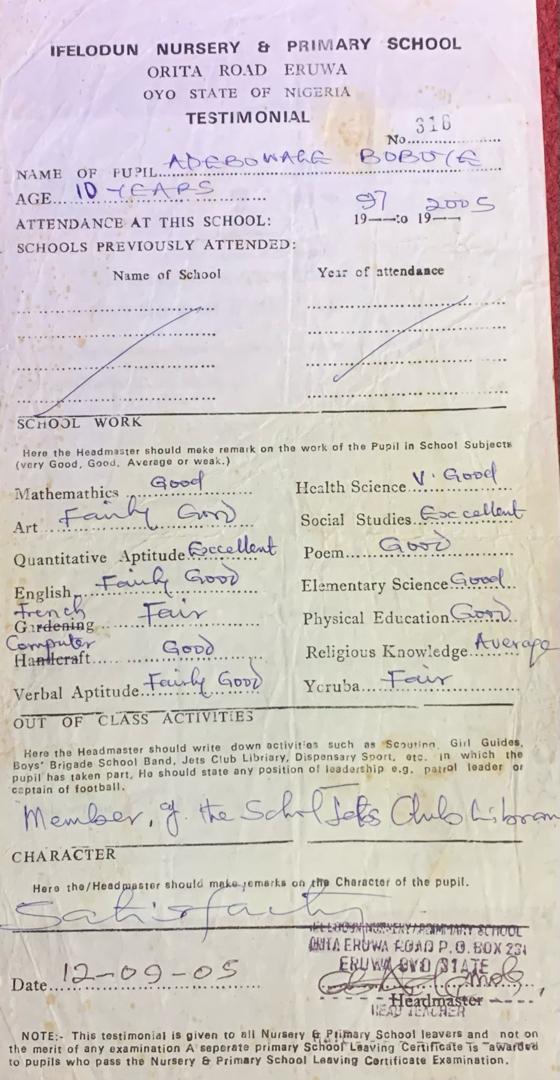 IFELODUN NURSERY & PRIMARY SCHOOL
ORITA ROAD ERUWA
OYO STATE OF NIGERIA
TESTIMONIAL
No. 316
NAME OF PUPIL ADEBOWALE BOBOYE
AGE 10 YEARS
ATTENDANCE AT THIS SCHOOL: 19— 97 to 19— 2005
SCHOOLS PREVIOUSLY ATTENDED:
Name of School Year of attendance
SCHOOL WORK
Here the Headmaster should make remark on the work of the Pupil in School Subjects
(very Good, Good, Average or weak.)
Mathemathics Good Health Science V. Good
Art Fairly Good Social Studies Excellent
Quantitative Aptitude Excellent Poem Good
English Fairly Good Elementary Science Good
French
Gardening Fair Physical Education Good
Computer
Handcraft Good Religious Knowledge Average
Verbal Aptitude Fairly Good Yoruba Fair
OUT OF CLASS ACTIVITIES
Here the Headmaster should write down activities such as Scouting, Girl Guides,
Boys' Brigade School Band, Jets Club Libriary, Dispensary Sport, etc. in which the
pupil has taken part, He should state any position of leadership e.g. patrol leader or
captain of football.
Member, of the School Jets Club Librar
CHARACTER
Here the/Headmaster should make remarks on the Character of the pupil.
IFELODUN NURSERY/PRIMARY SCHOOL
ORITA ERUWA ROAD P.O. BOX 231
ERUWA OYO STATE
Date 12-09-05
Headmaster
HEAD TEACHER
NOTE:- This testimonial is given to all Nursery & Primary School leavers and not on
the merit of any examination A seperate primary School Leaving Certificate is awarded
to pupils who pass the Nursery & Primary School Leaving Certificate Examination.